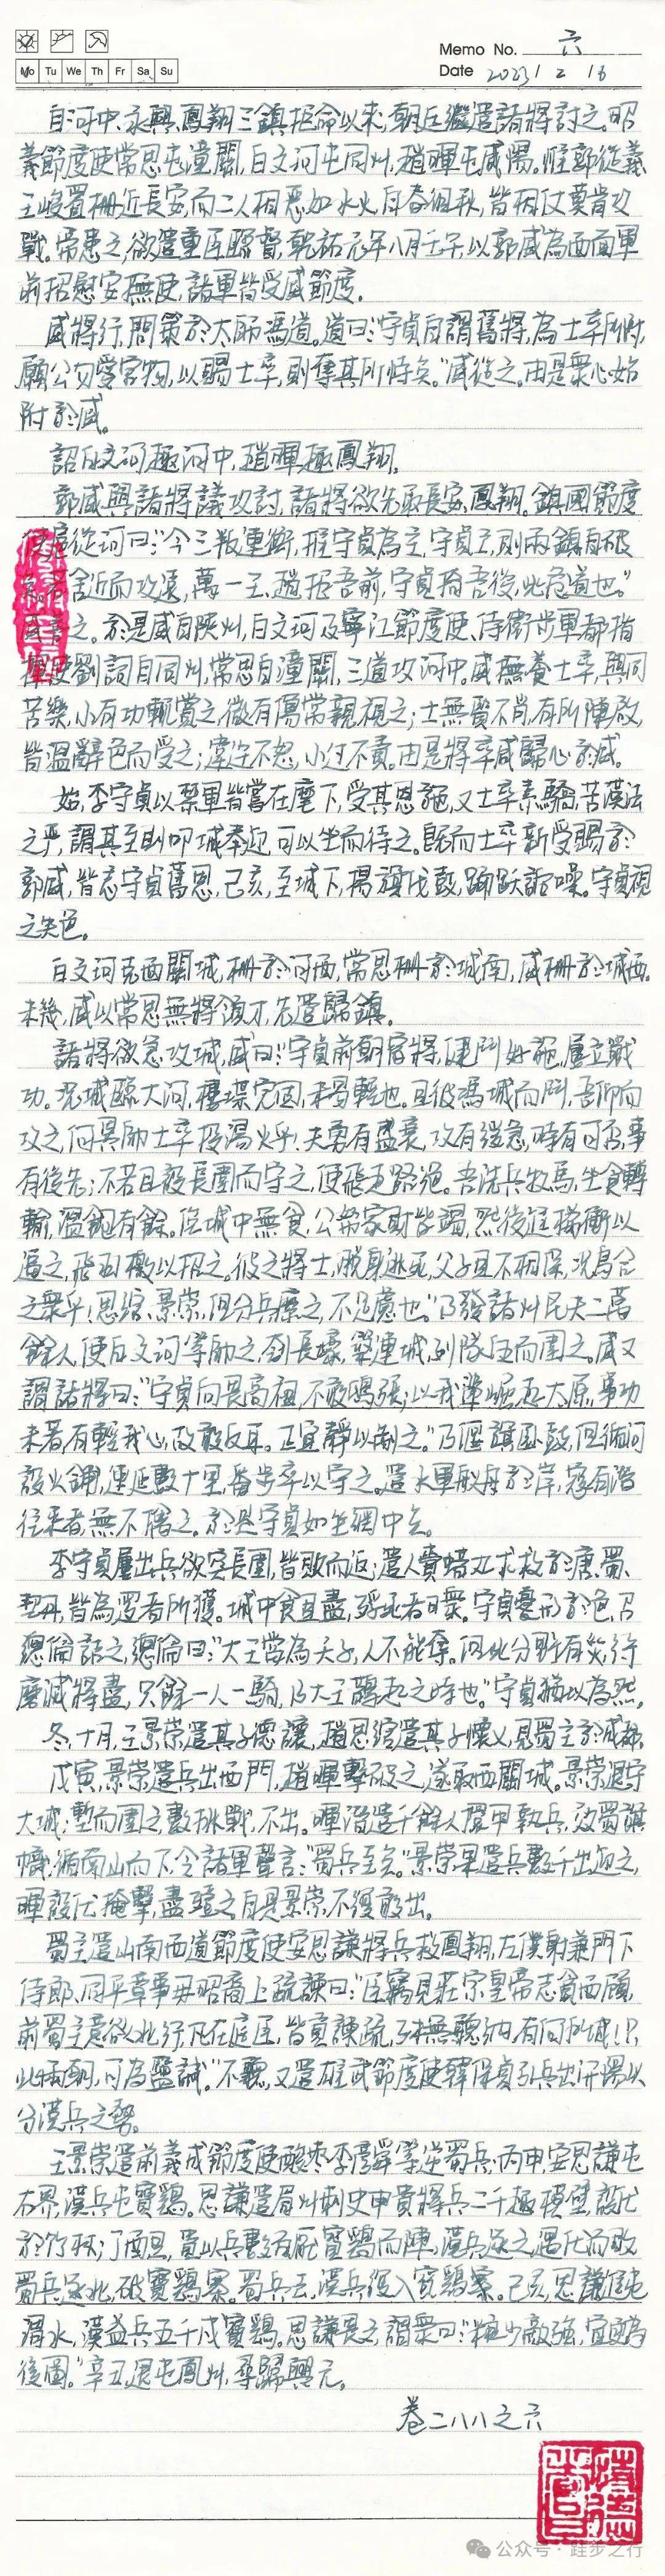 Memo No. 六
Mo Tu We Th Fr Sa Su
Date 2023 / 2 / 6
自河中、永興、鳳翔三鎮拒命以來,朝廷繼遣諸將討之。昭
義節度使常思屯潼關,白文珂屯同州,趙暉屯咸陽。惟郭從義、
王峻置柵近長安,而二人相惡如水火,自春徂秋,皆相仗莫肯攻
戰。帝患之,欲遣重臣臨督,乾祐元年八月壬午,以郭威為西面軍
前招慰安撫使,諸軍皆受威節度。
威將行,問策於太師馮道。道曰:“守貞自謂舊將,為士卒所附,
願公勿愛官物,以賜士卒,則奪其所恃矣。”威從之。由是眾心始
附於威。
詔白文珂趣河中,趙暉趣鳳翔。
郭威與諸將議攻討,諸將欲先取長安、鳳翔。鎮國節度
使扈從珂曰:“今三叛連衡,推守貞為主,守貞亡,則兩鎮自破
矣。若舍近而攻遠,萬一王、趙拒吾前,守貞掎吾後,此危道也。”
威善之。於是威自陝州,白文珂及寧江節度使、侍衛步軍都指
揮使劉詞自同州,常思自潼關,三道攻河中。威撫養士卒,與同
苦樂,小有功輒賞之,微有傷常親視之;士無賢不肖,有所陳啟,
皆溫辭色而受之;違忤不怒,小過不責。由是將卒咸歸心於威。
始,李守貞以禁軍皆嘗在麾下,受其恩施,又士卒素驕,苦漢法
之嚴,謂其至則叩城奉迎,可以坐而待之。既而士卒新受賜於
郭威,皆忘守貞舊恩,己亥,至城下,揚旗伐鼓,踴躍詬噪。守貞視
之失色。
白文珂克西關城,柵於河西,常思柵於城南,威柵於城西。
未幾,威以常思無將領才,先遣歸鎮。
諸將欲急攻城,威曰:“守貞前朝宿將,健鬥好施,屢立戰
功。況城臨大河,樓堞完固,未易輕也。且彼馮城而鬥,吾仰而
攻之,何異帥士卒投湯火乎!夫勇有盛衰,攻有緩急,時有可否,事
有後先;不若且設長圍而守之,使飛走路絕。吾洗兵牧馬,坐食轉
輸,溫飽有餘。俟城中無食,公帑家財皆竭,然後進梯衝以
逼之,飛羽檄以招之。彼之將士,脫身逃死,父子且不相保,況烏合
之眾乎!思綰、景崇,但分兵縻之,不足慮也。”乃發諸州民夫二萬
餘人,使白文珂等帥之,刳長壕,築連城,列隊伍而圍之。威又
謂諸將曰:“守貞向畏高祖,不敢鴟張;以我輩崛起太原,事功
未著,有輕我心,故敢反耳。正宜靜以制之。”乃偃旗臥鼓,但循河
設火鋪,連延數十里,番步卒以守之。遣水軍檥舟於岸,寇有潛
往來者,無不擒之。於是守貞如坐網中矣。
李守貞屢出兵欲突長圍,皆敗而返;遣人齎蠟丸求救於唐、蜀、
契丹,皆為邏者所獲。城中食且盡,殍死者日眾。守貞憂形於色,召
總倫詰之,總倫曰:“大王當為天子,人不能奪。但此分野有災,待
磨滅將盡,只餘一人一騎,乃大王鵲起之時也。”守貞猶以為然。
冬,十月,王景崇遣其子德讓,趙思綰遣其子懷乂,見蜀主於成都。
戊寅,景崇遣兵出西門,趙暉擊破之,遂取西關城。景崇退守
大城;塹而圍之,數挑戰,不出。暉潛遣千餘人擐甲執兵,效蜀旗
幟,循南山而下,令諸軍聲言:“蜀兵至矣。”景崇果遣兵數千出迎之,
暉設伏掩擊,盡殪之。自是景崇不復敢出。
蜀主遣山南西道節度使安思謙將兵救鳳翔,左僕射兼門下
侍郎、同平章事毋昭裔上疏諫曰:“臣竊見莊宗皇帝志貪西顧,
前蜀主意欲北行,凡在庭臣,皆貢諫疏,殊無聽納,有何所成!只
此兩朝,可為鑒誡。”不聽,又遣雄武節度使韓保貞引兵出汧陽以
分漢兵之勢。
王景崇遣前義成節度使酸棗李彥舜等逆蜀兵。丙申,安思謙屯
右界,漢兵屯寶雞。思謙遣眉州刺史申貴將兵二千趣模壁,設伏
於竹林;丁酉旦,貴以兵數百壓寶雞而陣,漢兵逐之,遇伏而敗,
蜀兵逐北,破寶雞寨。蜀兵去,漢兵復入寶雞寨。己亥,思謙進屯
渭水,漢益兵五千戍寶雞。思謙畏之,謂眾曰:“糧少敵強,宜更為
後圖。”辛丑,退屯鳳州,尋歸興元。
卷二八八之六
公众号 · 跬步之行